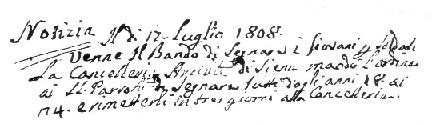 Notizia A di 17 Luglio 1808.
Venne Il Bando di Segnare i Giovani p Soldati
La Cancelleria di Siena mandò l'ordine
ai SS. Parrochi di Segnare tutti dagli anni 18 ai
24. e rimetterli in tre giorni alla Cancelleria